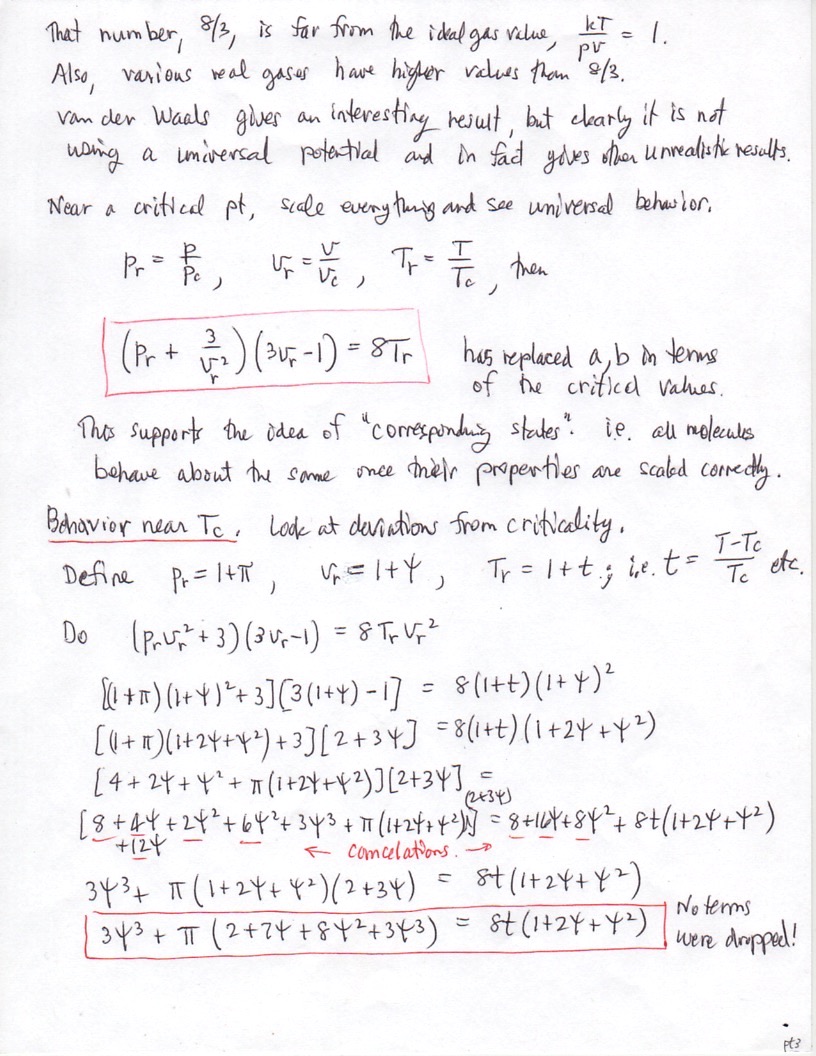 That number, 8/3, is far from the ideal gas value, kT/pv = 1.
Also, various real gases have higher values than 8/3.
van der Waals gives an interesting result, but clearly it is not
using a universal potential and in fact gives other unrealistic results.
Near a critical pt, scale everything and see universal behavior.
pr = p/pc , vr = v/vc , Tr = T/Tc , then
(pr + 3/vr²)(3vr-1) = 8Tr has replaced a,b in terms
of the critical values.
This supports the idea of "corresponding states". i.e. all molecules
behave about the same once their properties are scaled correctly.
Behavior near Tc. Look at deviations from criticality.
Define pr = 1+π , vr = 1+ψ , Tr = 1+t ; i.e. t = T-Tc/Tc etc.
Do (prvr²+3)(3vr-1) = 8Trvr²
[(1+π)(1+ψ)²+3][3(1+ψ)-1] = 8(1+t)(1+ψ)²
[(1+π)(1+2ψ+ψ²)+3][2+3ψ] = 8(1+t)(1+2ψ+ψ²)
[4+2ψ+ψ²+π(1+2ψ+ψ²)][2+3ψ] =
(2+3ψ)
[8+4ψ+2ψ²+6ψ²+3ψ³+π(1+2ψ+ψ²)] = 8+16ψ+8ψ²+8t(1+2ψ+ψ²)
+12ψ ← comcelations. →
3ψ³+ π(1+2ψ+ψ²)(2+3ψ) = 8t(1+2ψ+ψ²)
3ψ³ + π (2+7ψ+8ψ²+3ψ³) = 8t(1+2ψ+ψ²) No terms
were dropped!
pt3